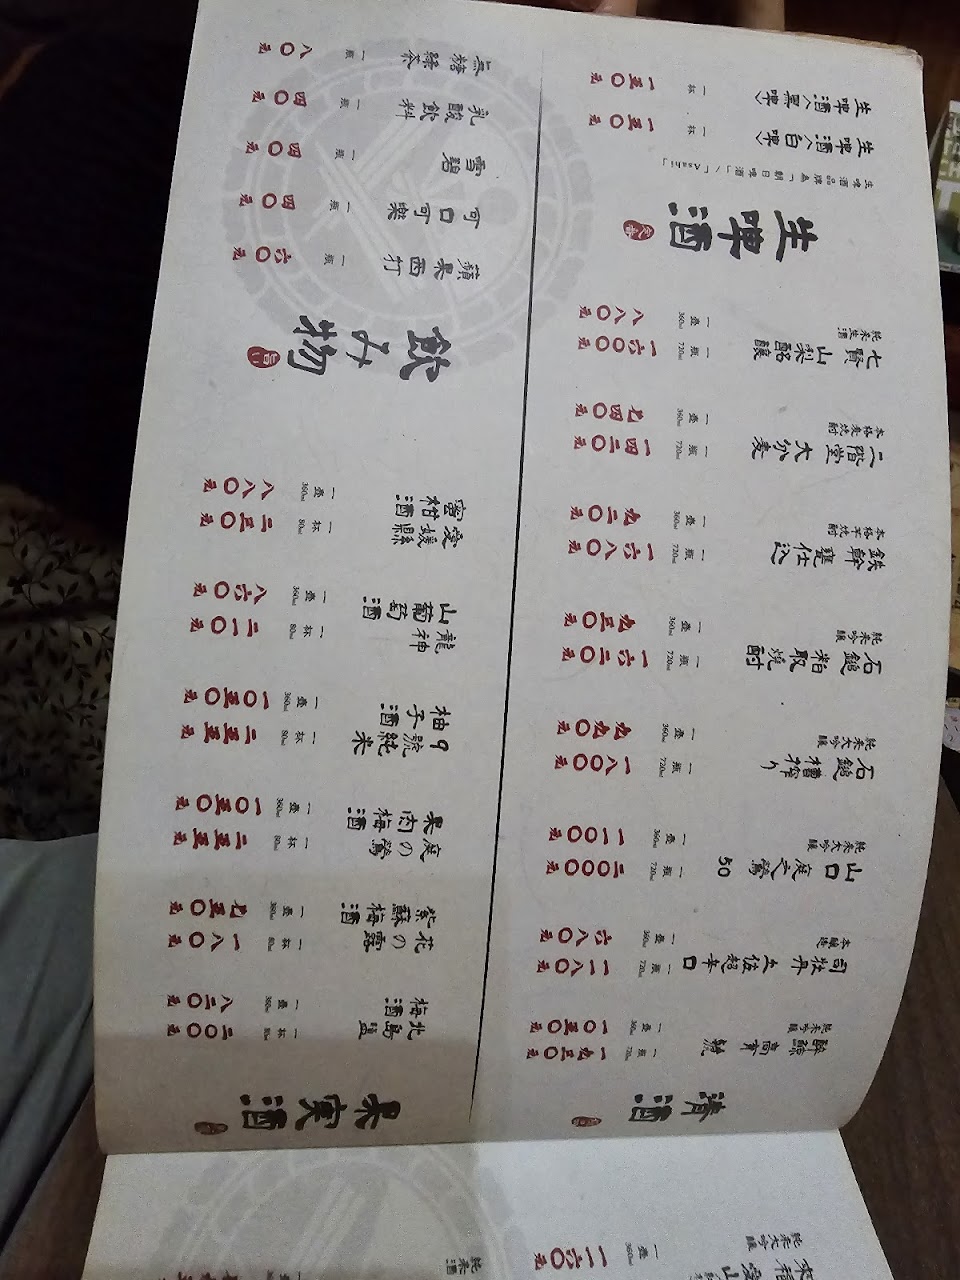 純米大吟釀
一壺 360ml 一一六〇元
純米酒
清酒
醉鯨 高育
純米吟釀
一瓶 720ml 一九五〇元
一壺 360ml 一〇五〇元
司牡丹 土佐超辛口
本釀造
一瓶 720ml 一一八〇元
一壺 360ml 六八〇元
山口 庭之鶯 50
純米大吟釀
一瓶 720ml 二〇〇〇元
一壺 360ml 一一〇〇元
石鎚 槽搾り
純米大吟釀
一瓶 720ml 一八〇〇元
一壺 360ml 九九〇元
石鎚 粕取燒酎
純米吟釀
一瓶 720ml 一六二〇元
一壺 360ml 九五〇元
鉄幹 甕仕込
本格芋燒酎
一瓶 720ml 一六八〇元
一壺 360ml 九二〇元
二階堂 大分麦
本格麦燒酎
一瓶 720ml 一四二〇元
一壺 360ml 七四〇元
七賢 山梨酩釀
純米生酒
一瓶 720ml 一六〇〇元
一壺 360ml 八八〇元
生啤酒
生啤酒品牌為「朝日啤酒」/「Asahi」
生啤酒(白啤) 一杯 一五〇元
生啤酒(黑啤) 一杯 一五〇元
果実酒
北島盬
梅酒
一杯 80ml 二〇〇元
一壺 360ml 八二〇元
花の露
紫蘇梅酒
一杯 80ml 一八〇元
一壺 360ml 七五〇元
庭の鶯
果肉梅酒
一杯 80ml 二五五元
一壺 360ml 一〇五〇元
9號純米
柚子酒
一杯 80ml 二五五元
一壺 360ml 一〇五〇元
龍神
山葡萄酒
一杯 80ml 二一〇元
一壺 360ml 八六〇元
愛媛縣
蜜柑酒
一杯 80ml 二三〇元
一壺 360ml 八八〇元
飲み物
旨い
蘋果西打 一瓶 六〇元
可口可樂 一瓶 四〇元
雪碧 一瓶 四〇元
乳酸飲料 一瓶 四〇元
無糖綠茶 一瓶 八〇元